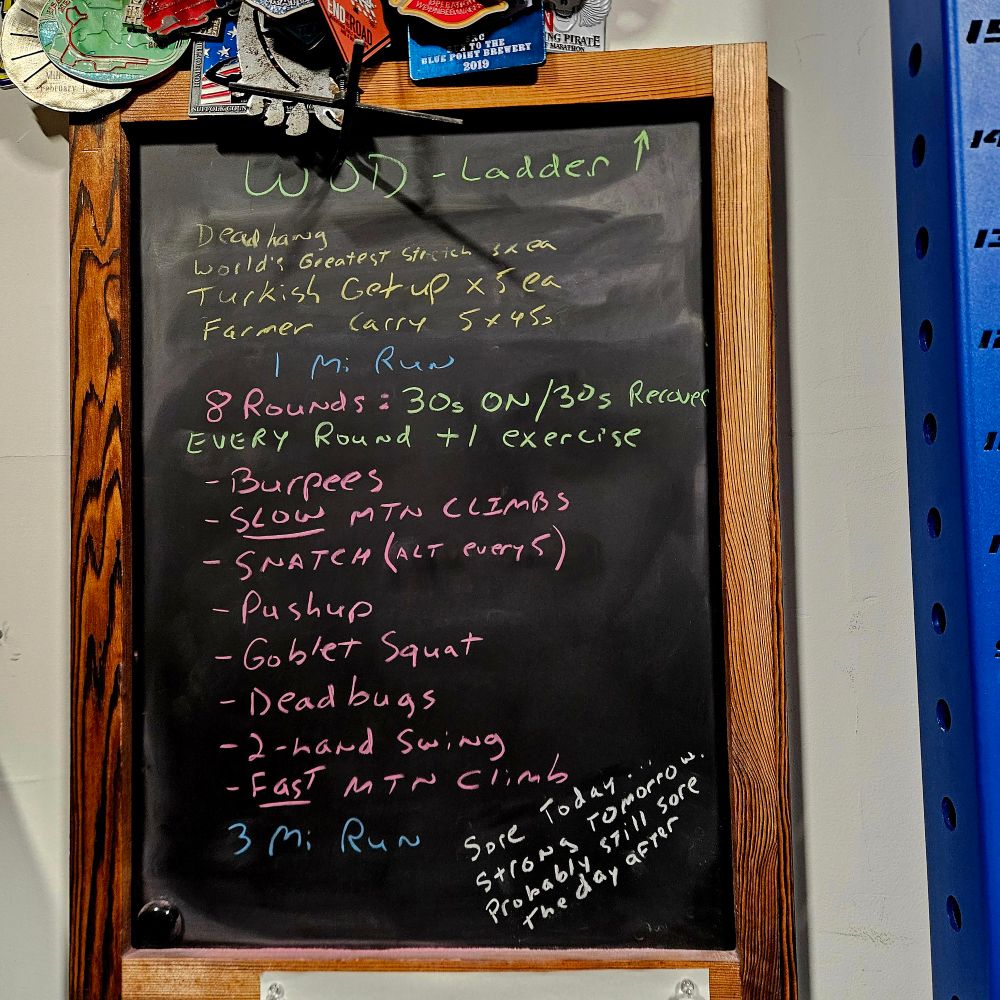 END
ROAD
OPERATION
TO THE
BLUE POINT BREWERY
2019
NG PIRATE
MARATHON
February 1
SUFFOLK COUN
WOD - Ladder ↑
Dead hang
World's Greatest Stretch 3x ea
Turkish Getup x 5 ea
Farmer Carry 5x45s
1 Mi Run
8 Rounds: 30s ON/30s Recover
EVERY Round +1 exercise
- Burpees
- SLOW MTN CLIMBS
- SNATCH (ALT every 5)
- Pushup
- Goblet Squat
- Deadbugs
- 2-hand Swing
- Fast MTN Climb
3 Mi Run
Sore Today...
Strong Tomorrow.
Probably still sore
The day after
15
14
13
12